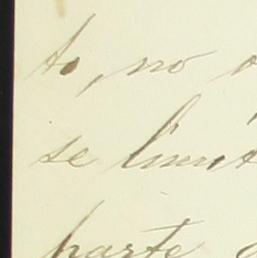 to, no
se limit
parte